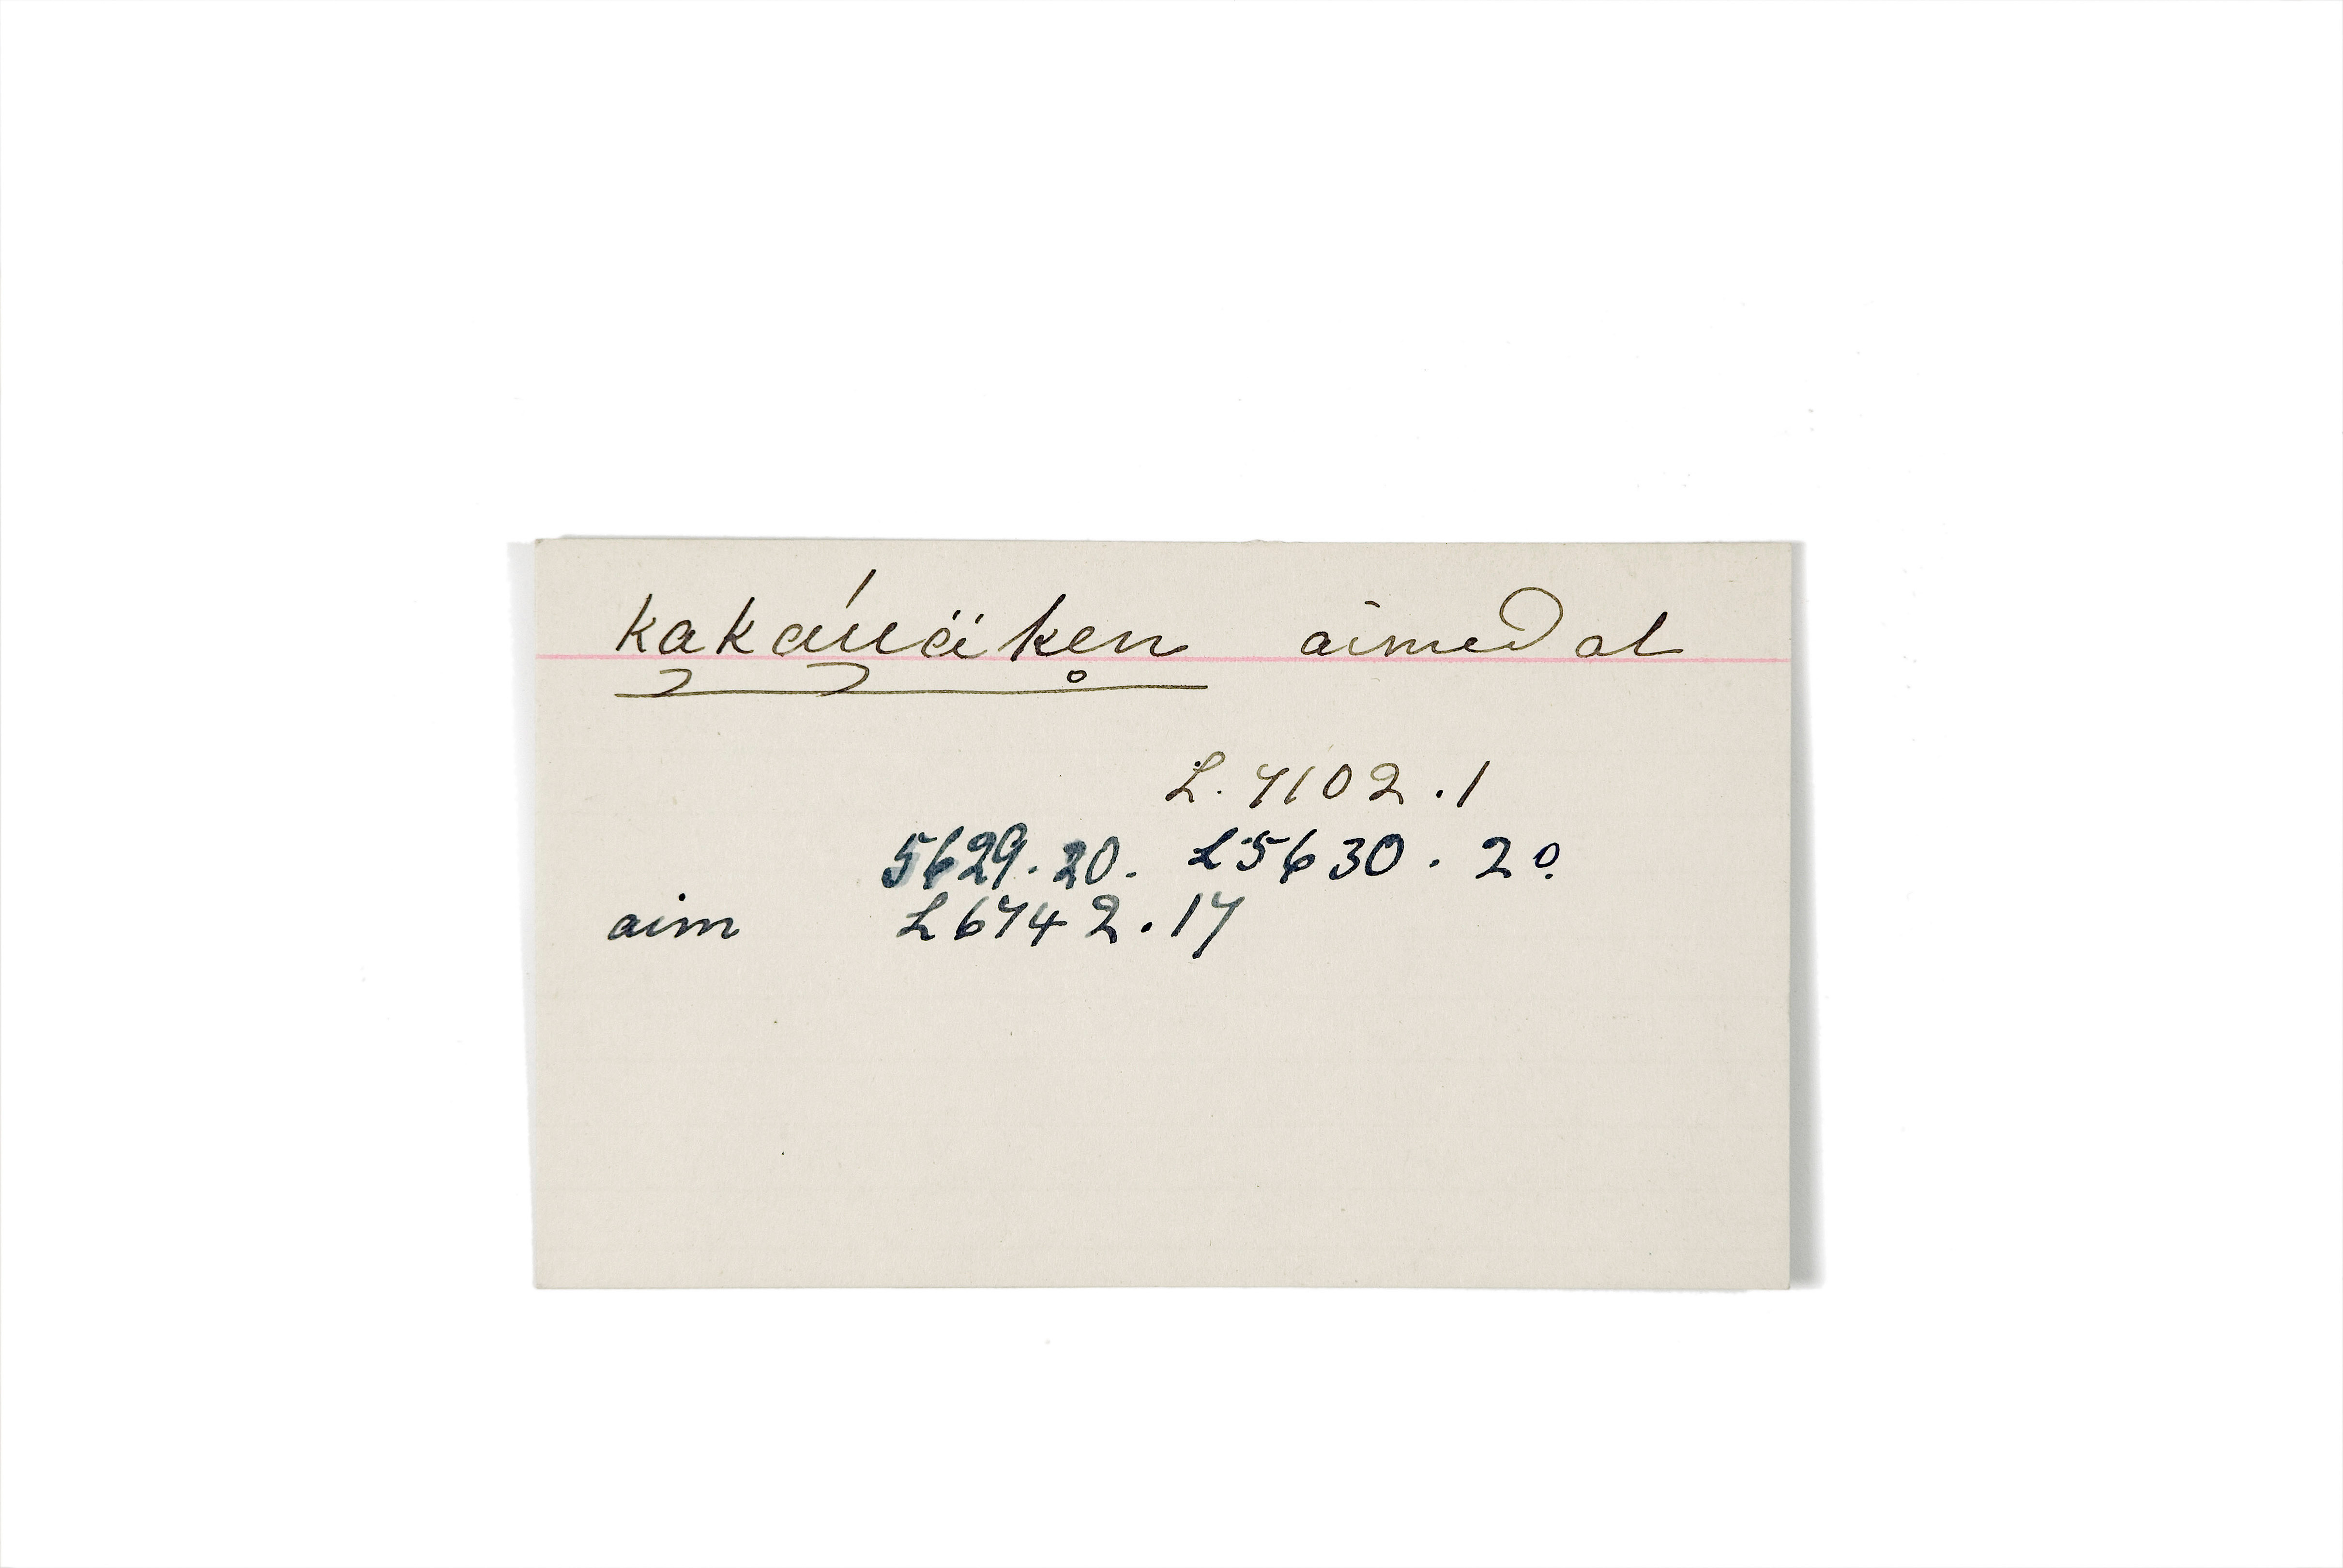 kakáuäken aimed at
L. 7102.1
5629.20. L5630.20.
aim L6742.17